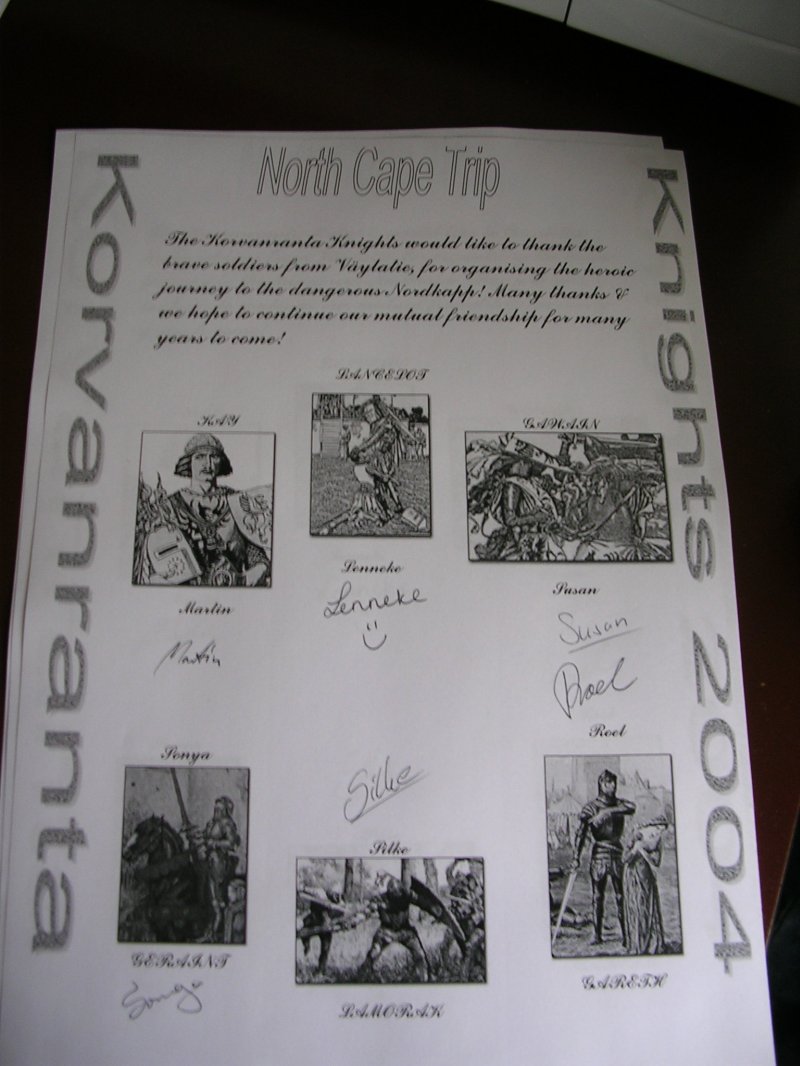 North Cape Trip
Korvanranta
Knights 2004
The Korvanranta Knights would like to thank the
brave soldiers from Väylatie, for organising the heroic
journey to the dangerous Nordkapp! Many thanks &
we hope to continue our mutual friendship for many
years to come!
LANCELOT
KAY
GAWAIN
Lenneke
Martin
Susan
Lenneke
Martin
Susan
Roel
Roel
Sonya
Silke
Silke
GERAINT
LAMORAK
GARETH
Sonya